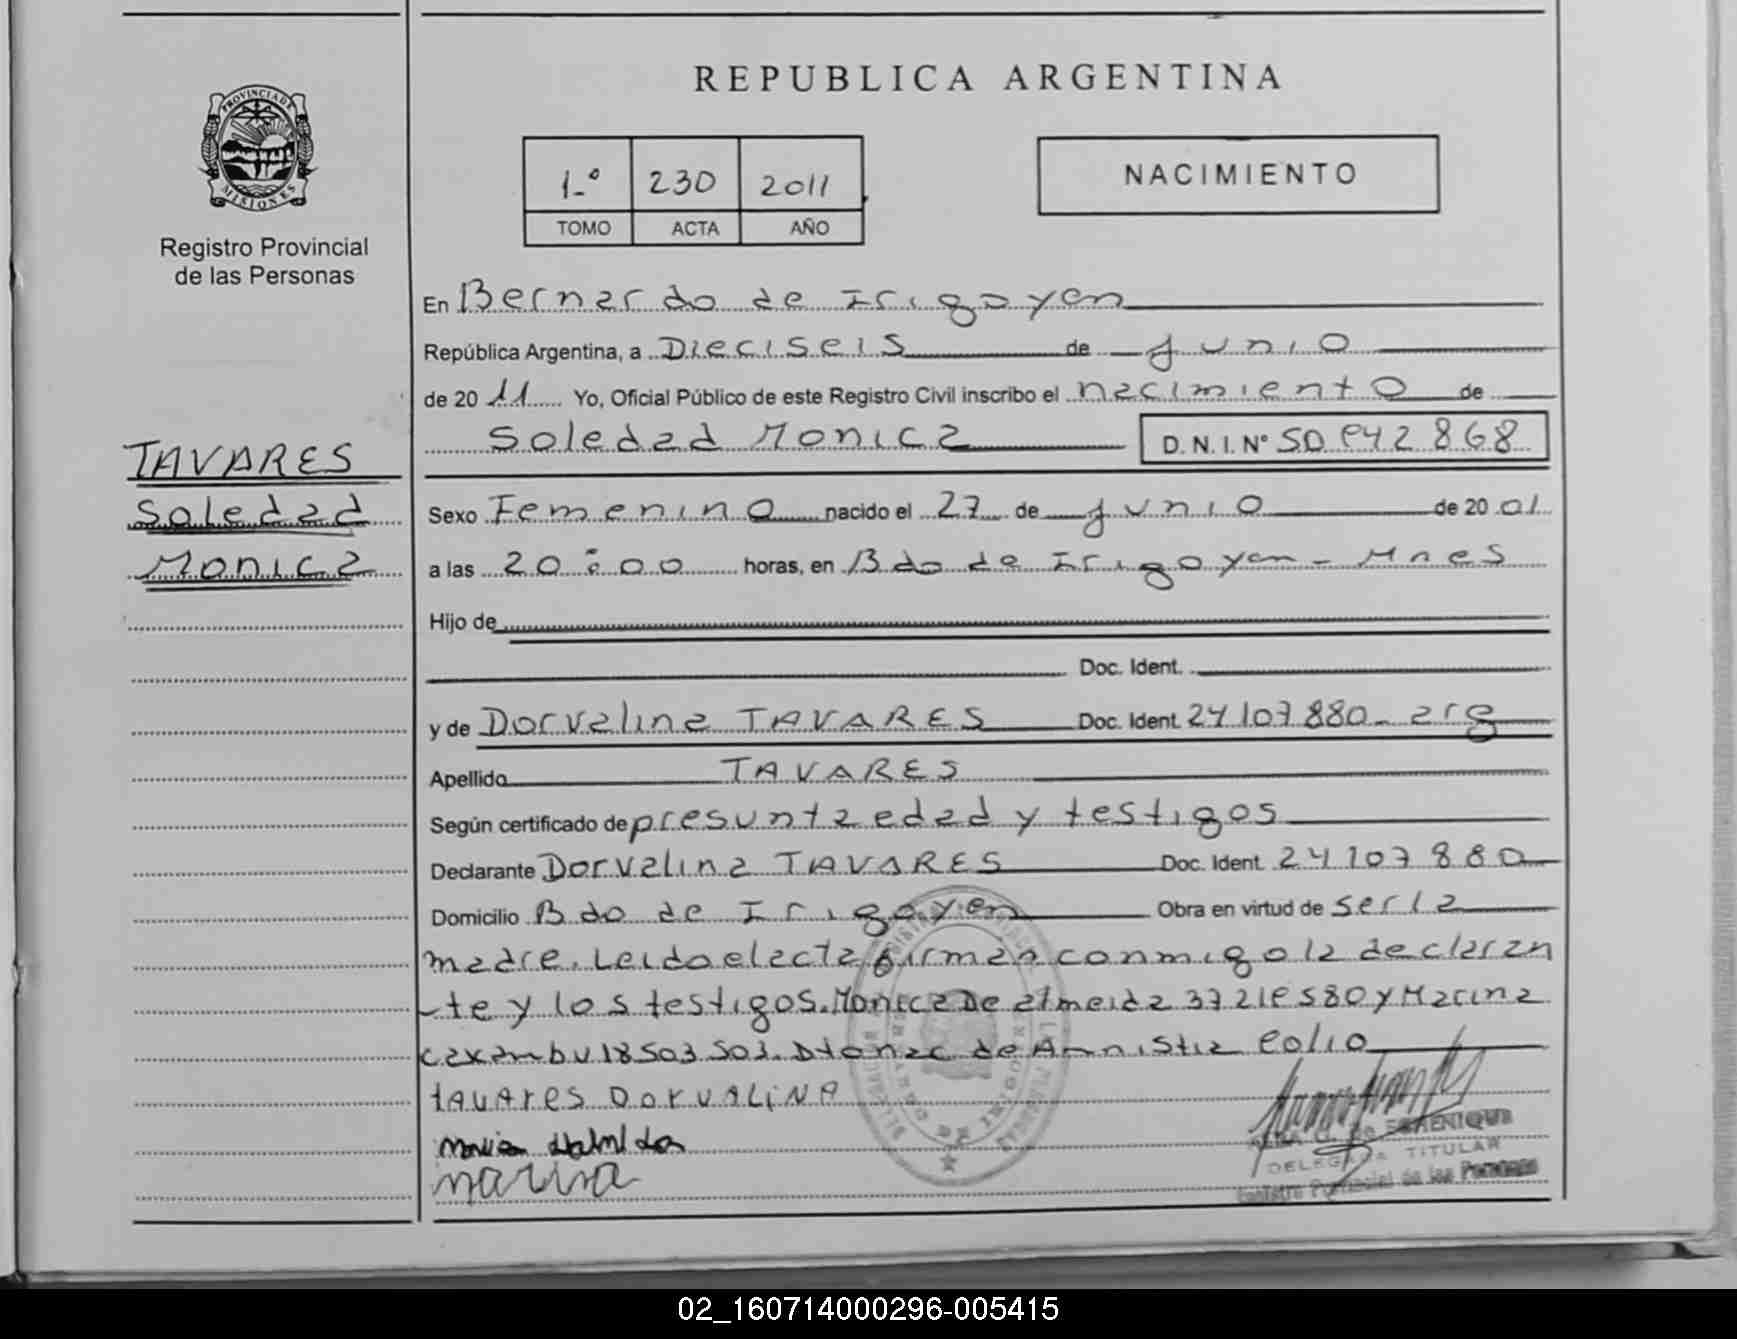 REPUBLICA ARGENTINA
PROVINCIA DE MISIONES
Registro Provincial
de las Personas
1-º 230 2011
TOMO ACTA AÑO
NACIMIENTO
En Bernardo de Irigoyen
República Argentina, a Dieciseis de Junio
de 2011 Yo, Oficial Público de este Registro Civil inscribo el nacimiento de
Soledad Monica D.N.I. Nº 868
TAVARES
Soledad
Monica
Sexo Femenino nacido el 27 de Junio de 2001
a las 20:00 horas, en Bdo de Irigoyen - Mnes
Hijo de
Doc. Ident.
y de Dorvalina TAVARES Doc. Ident. 24107880- arg
Apellido TAVARES
Según certificado de presunta edad y testigos
Declarante Dorvalina TAVARES Doc. Ident. 24107880
Domicilio Bdo de Irigoyen Obra en virtud de ser la
madre. Leido el acta firman conmigo la declaran
-te y los testigos. Monica De almeida y Marina
18503503. de Amnistia folio
tAVAres DorVALiNA
marina
DELEGADA TITULAR
Registro Provincial de las Personas
02_160714000296-005415